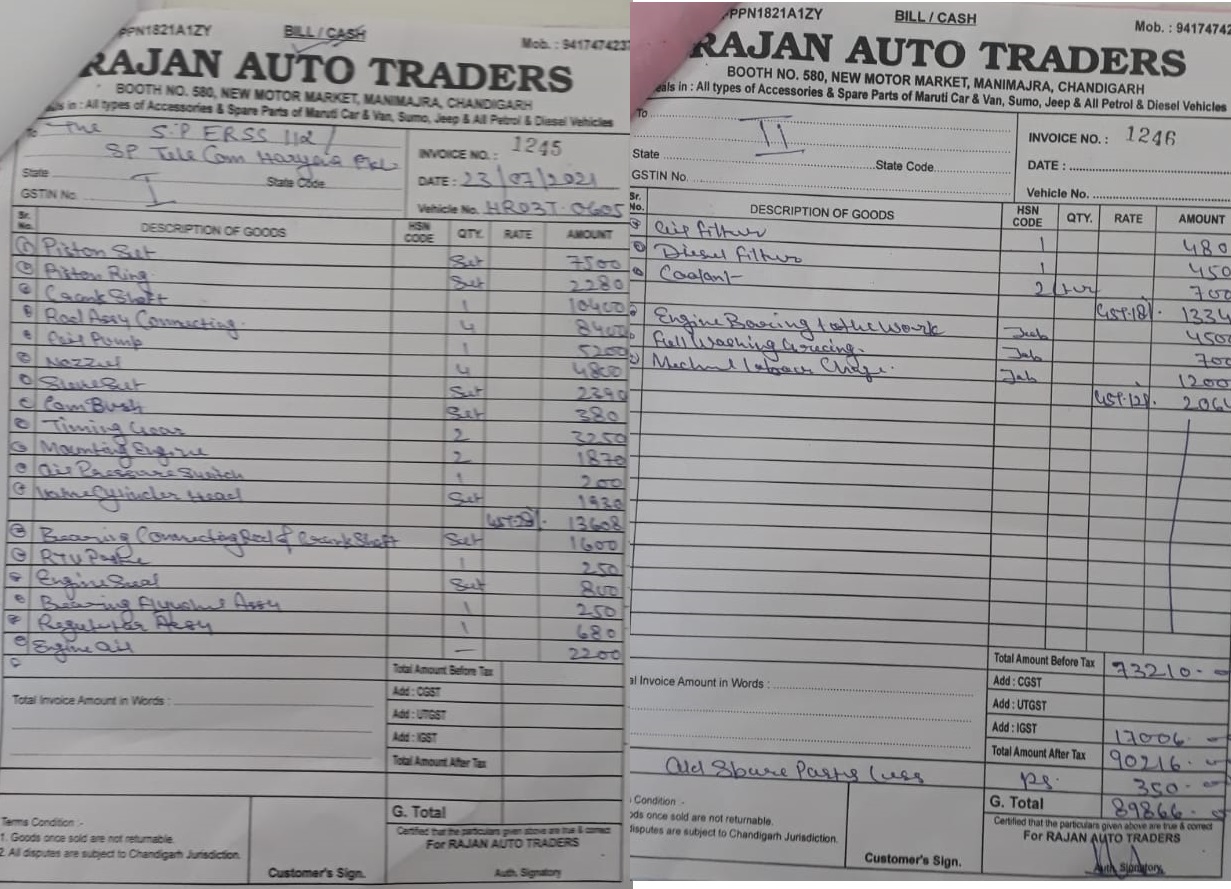 PPN1821A1ZY
BILL / CASH
Mob. : 941747423
RAJAN AUTO TRADERS
BOOTH NO. 580, NEW MOTOR MARKET, MANIMAJRA, CHANDIGARH
als in : All types of Accessories & Spare Parts of Maruti Car & Van, Sumo, Jeep & All Petrol & Diesel Vehicles
To The S.P ERSS 112/
SP Tele Com Haryana
State
State Code
GSTIN No.
I
INVOICE NO. : 1245
DATE : 23/07/2021
Vehicle No. HR03T-0605
Sr. No. DESCRIPTION OF GOODS HSN CODE QTY. RATE AMOUNT
Piston Set Set 7500
Piston Ring Set 2280
Crank Shaft 1 10400
Rod Assy Connecting 4 8400
Oil Pump 1 5200
Nozzel 4 4800
Sleve Set Set 2390
Cam Bush Set 380
Timing Gear 2 3250
Mounting Engine 2 1870
Oil Pressure Switch 1 200
Valve Cylinder Head Set 1930
13608
Bearing Connecting Rod & Crank Shaft Set 1600
RTV Paste 1 250
Engine Seal Set 800
Bearing Flywheel Assy 1 250
Regulator Assy 1 680
Engine Oil — 2200
Total Amount Before Tax
Total Invoice Amount in Words :
Add : CGST
Add : UTGST
Add : IGST
Total Amount After Tax
G. Total
Terms Condition :-
1. Goods once sold are not returnable.
2. All disputes are subject to Chandigarh Jurisdiction.
Customer's Sign.
Certified that the particulars given above are true & correct
For RAJAN AUTO TRADERS
Auth. Signatory
PPN1821A1ZY
BILL / CASH
Mob. : 9417472
RAJAN AUTO TRADERS
BOOTH NO. 580, NEW MOTOR MARKET, MANIMAJRA, CHANDIGARH
eals in : All types of Accessories & Spare Parts of Maruti Car & Van, Sumo, Jeep & All Petrol & Diesel Vehicles
To
II
State
State Code
GSTIN No.
INVOICE NO. : 1246
DATE :
Vehicle No.
Sr. No. DESCRIPTION OF GOODS HSN CODE QTY. RATE AMOUNT
Air filter 1 480
Diesel filter 1 450
Coolant 2 ltr 700
GST.18%. 1334
Engine Boring Work Job 4500
Full Washing Greecing Job 700
Job 1200
206
Total Amount Before Tax 73210-
al Invoice Amount in Words :
Add : CGST
Add : UTGST
Add : IGST 17006-
Total Amount After Tax 90216-
Old Spare Parts Less Rs. 350-
G. Total 89866-
Condition :-
ods once sold are not returnable.
disputes are subject to Chandigarh Jurisdiction.
Customer's Sign.
Certified that the particulars given above are true & correct
For RAJAN AUTO TRADERS
Auth. Signatory